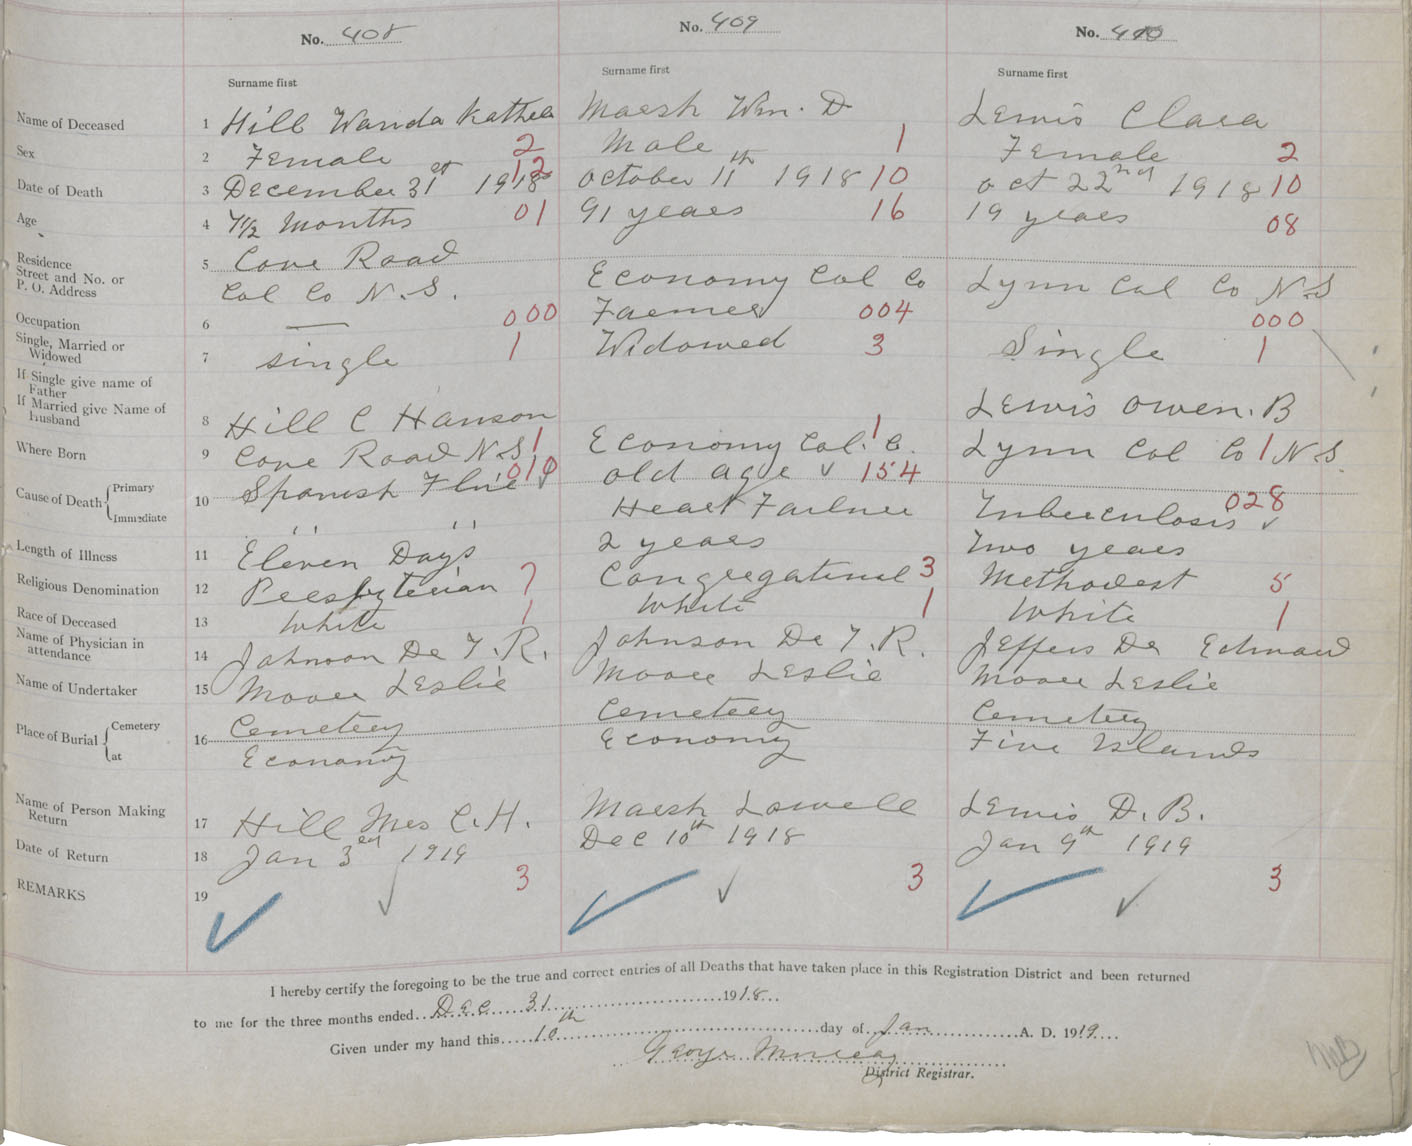 No. 408 No. 409 No. 410
Surname first Surname first Surname first
Name of Deceased 1 Hill Wanda Kathlee Marsh Wm. D Lewis Clara
Sex 2 Female 2 Male 1 Female 2
Date of Death 3 December 31st 1918 12 October 11th 1918 10 Oct 22nd 1918 10
Age 4 7 1/2 Months 01 91 years 16 19 years 08
Residence Street and No. or P. O. Address 5 Cove Road
Col Co N.S. Economy Col Co Lynn Col Co N.S
Occupation 6 — 000 Farmer 004 000
Single, Married or Widowed 7 single 1 Widowed 3 Single 1
If Single give name of Father
If Married give Name of Husband 8 Hill C Hanson Lewis Owen. B
Where Born 9 Cove Road N.S 1 Economy Col. Co. 1 Lynn Col Co 1 N.S.
Cause of Death { Primary 10 Spanish Flue 010 old age 154 028
Immediate " " Heart Failure Tuberculosis
Length of Illness 11 Eleven Days 2 years Two years
Religious Denomination 12 Presbyterian 7 Congregational 3 Methodest 5
Race of Deceased 13 White 1 White 1 White 1
Name of Physician in attendance 14 Johnson Dr T. R. Johnson Dr T. R. Jeffers Dr Edward
Name of Undertaker 15 Moore Leslie Moore Leslie Moore Leslie
Place of Burial { Cemetery 16 Cemetery Cemetery Cemetery
at Economy Economy Five Islands
Name of Person Making Return 17 Hill Mrs C. H. Marsh Lowell Lewis D. B.
Date of Return 18 Jan 3rd 1919 Dec 10th 1918 Jan 9th 1919
REMARKS 19 3 3 3
I hereby certify the foregoing to be the true and correct entries of all Deaths that have taken place in this Registration District and been returned
to me for the three months ended Dec 31 1918
Given under my hand this 10th day of Jan A. D. 1919
District Registrar.